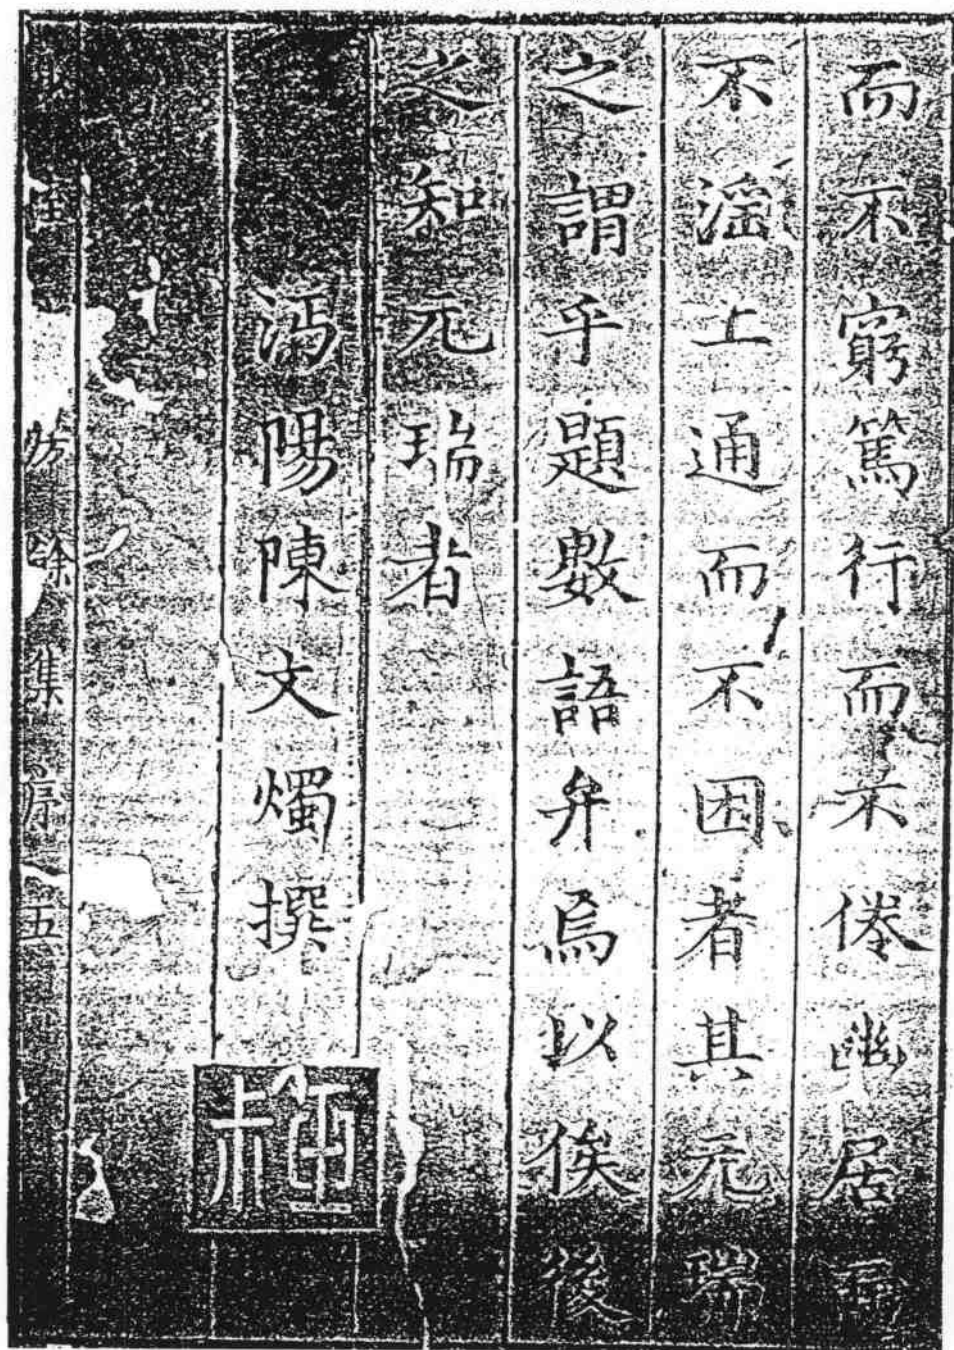 而不窮篤行而不倦幽居而
不淫上通而不困者其元瑞
之謂乎題數語弁焉以俟後
之知元瑞者
沔陽陳文燭撰
房餘集序
五